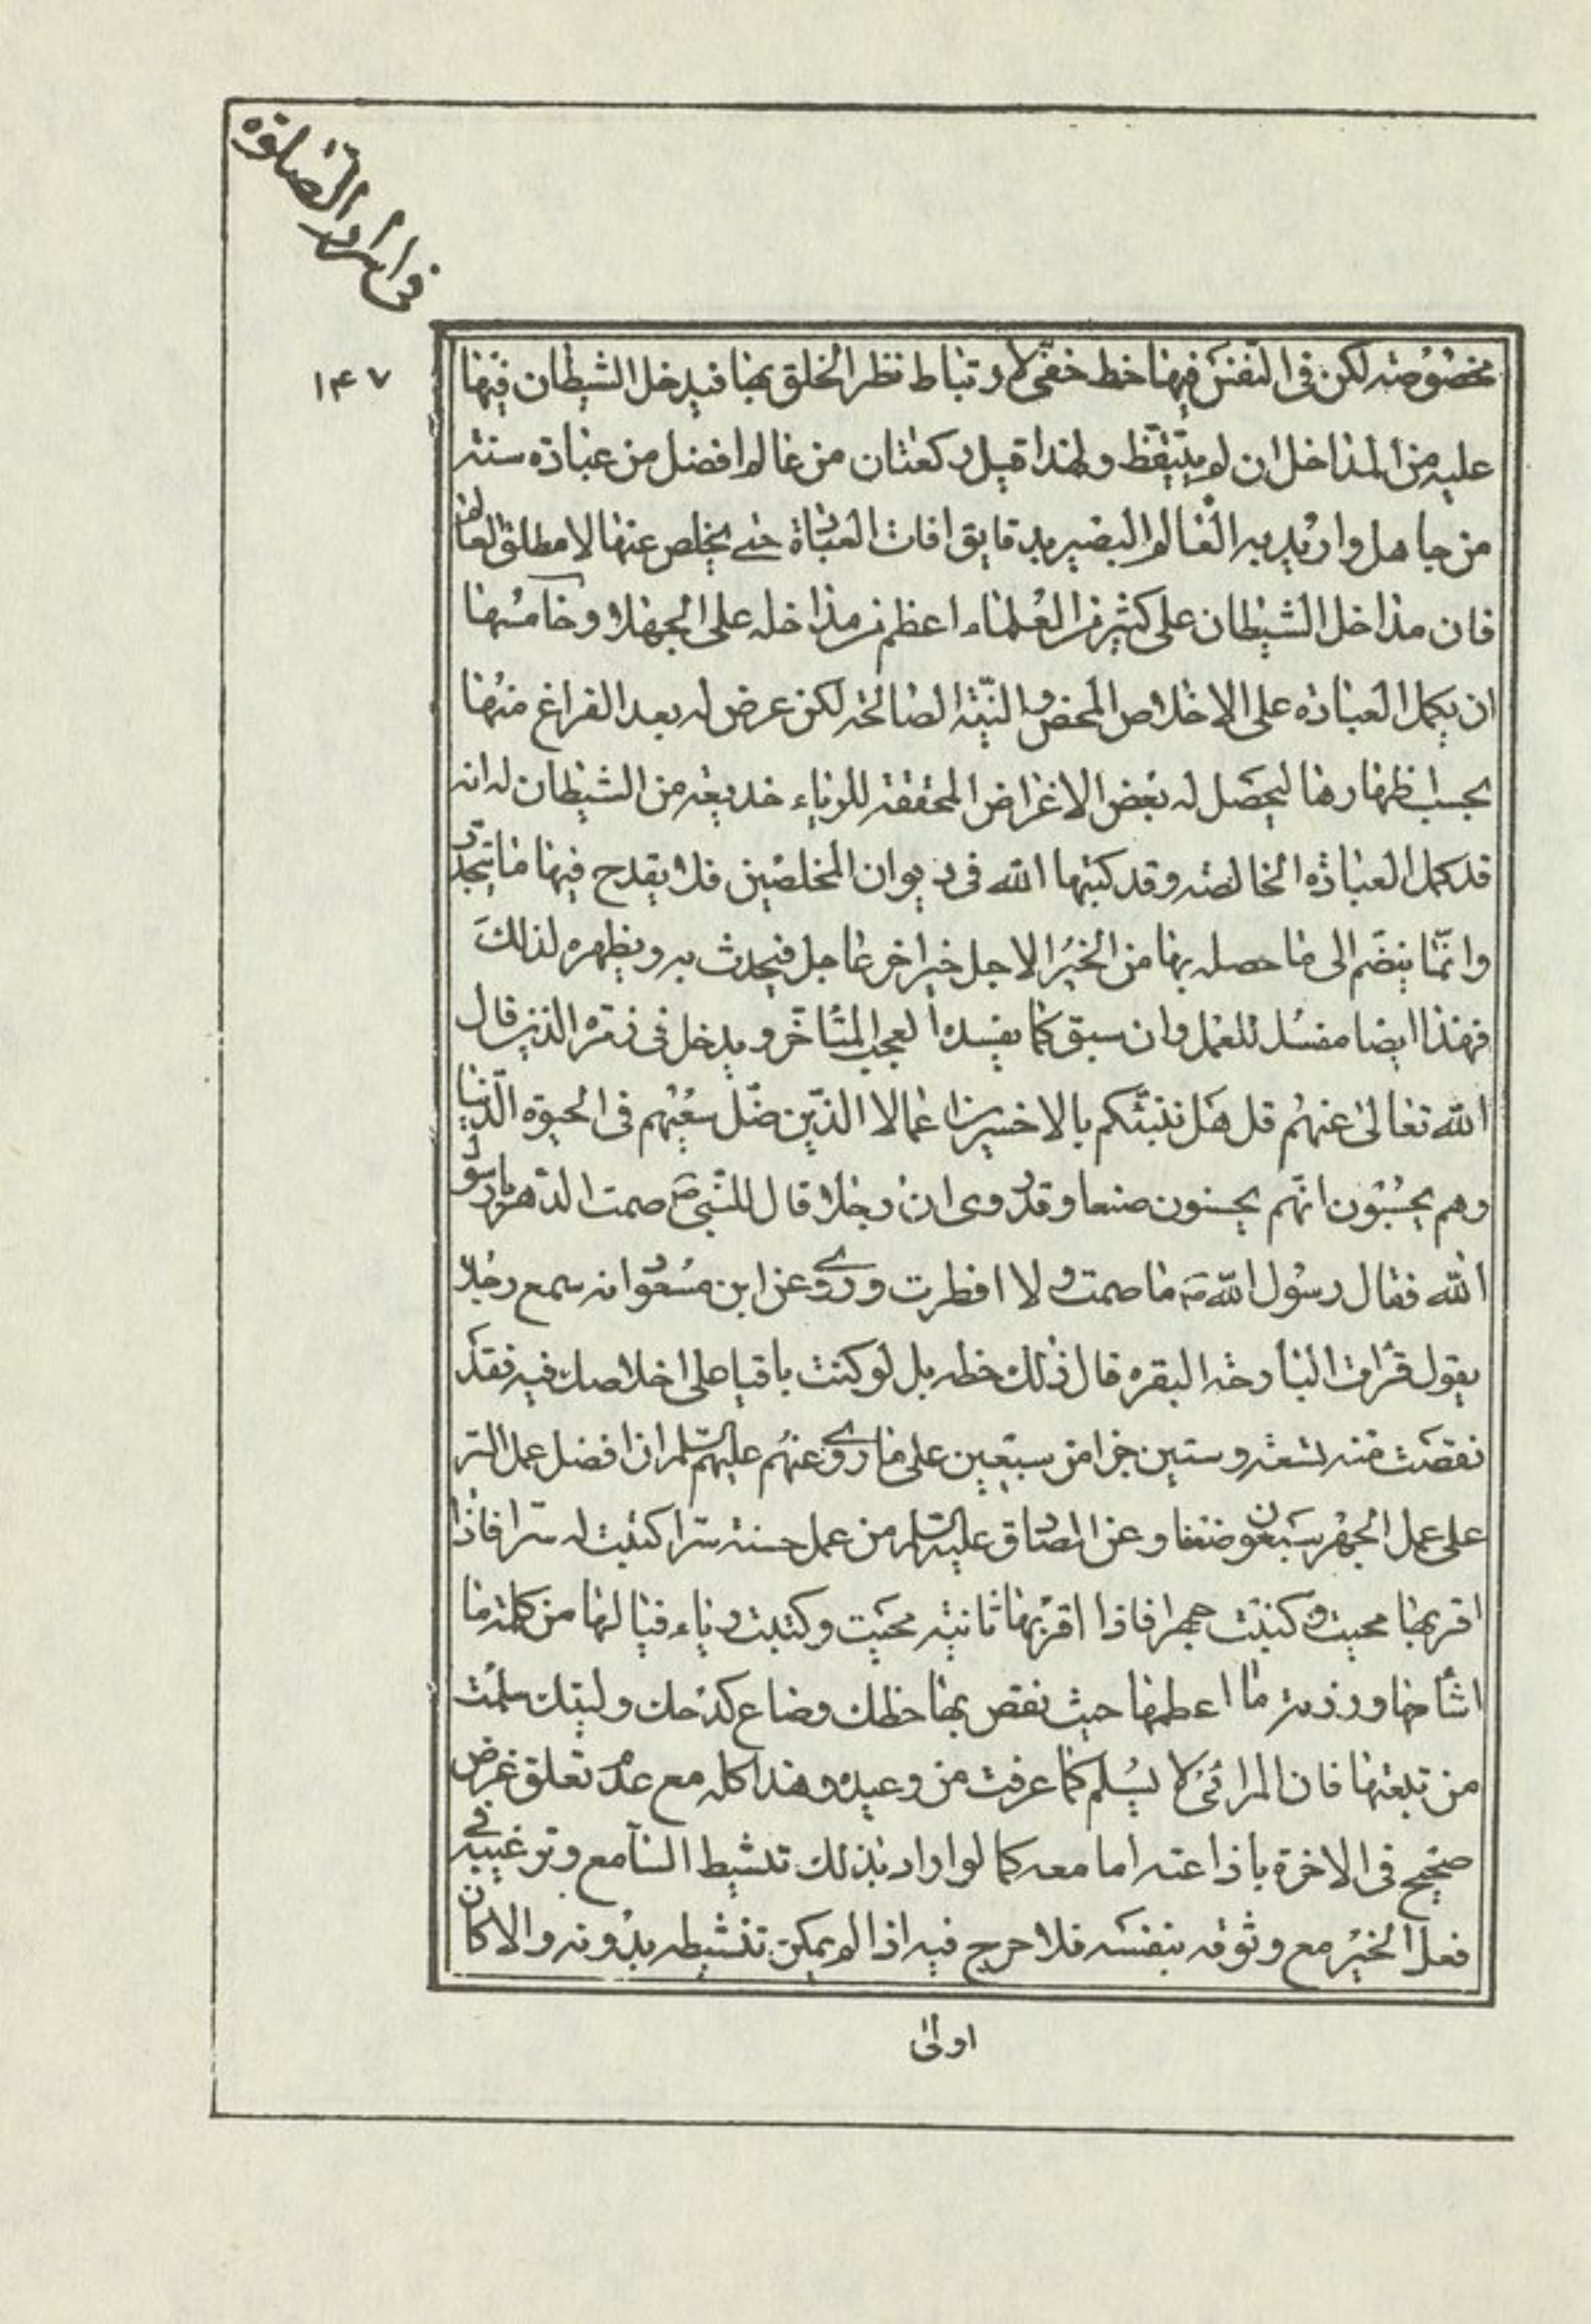 فی اسرار الصلوة
۱۴۷
مخصوصة لكن فى النفس فيها حظ خفى لارتباط نظر الخلق بها فيدخل الشيطان فيها
عليه من المداخل ان لم يتيقظ ولهذا قيل ركعتان من عالم افضل من عبادة سنة
من جاهل واريد به العالم البصير بدقايق افات العبادة حتى يخلص عنها لا مطلق العالم
فان مداخل الشيطان على كثير من العلماء اعظم من مداخله على الجهلاء وخامسها
ان يكمل العبادة على الاخلاص المحض والنية الصالحة لكن عرض له بعد الفراغ منها
بحسب اظهارها ليحصل له بعض الاغراض المحققة للرياء خديعة من الشيطان له انه
قد كمل العبادة الخالصة وقد كتبها الله فى ديوان المخلصين فلا يقدح فيها ما يتجدد
وانما ينضم الى ما حصله بها من الخير الاجل خير اخر عاجل فيحدث به ويظهره لذلك
فهذا ايضا مفسد للعمل وان سبق كما يفسده العجب المتاخر ويدخل فى زمرة الذين قال
الله تعالى عنهم قل هل ننبئكم بالاخسرين اعمالا الذين ضل سعيهم فى الحيوة الدنيا
وهم يحسبون انهم يحسنون صنعا وقد روى ان رجلا قال للنبى ص صمت الدهر يا رسول
الله فقال رسول الله ص ما صمت ولا افطرت وروى عن ابن مسعود انه سمع رجلا
يقول قرات البارحة البقره قال ذلك حظه بل لو كنت باقيا على اخلاصك فيه فقد
نقصت منه تسعة وستين جزا من سبعين على ما روى عنهم عليهم السلام ان افضل عمل السر
على عمل الجهر سبعون ضعفا وعن الصادق عليه السلام من عمل حسنة سرا كتبت له سرا فاذا
اقر بها محيت وكتبت جهرا فاذا اقر بها ثانية محيت وكتبت رياء فيا لها من كلمة ما
اشامها ورزية ما اعظمها حيث نقص بها حظك وضاع كدحك وليتك سلمت
من تبعتها فان المرائى لا يسلم كما عرفت من وعيده وهذا كله مع عدم تعلق غرض
صحيح فى الاخرة باذاعته اما معه كما لو اراد بذلك تنشيط السامع وترغيبه فى
فعل الخير مع وثوقه بنفسه فلا حرج فيه اذا لم يمكن تنشيطه بدونه والا كان
اولى